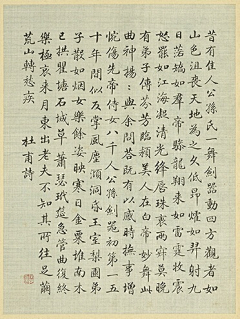 昔有佳人公孫氏一舞劍器動四方觀者如
山色沮喪天地為之久低昂㸌如羿射九
日落矯如羣帝驂龍翔來如雷霆收震
怒罷如江海凝清光絳唇珠袖兩寂寞晚
有弟子傳芬芳臨潁美人在白帝妙舞此
曲神揚〻與余問答既有以感時撫事增
惋傷先帝侍女八千人公孫劍器初第一五
十年間似反掌風塵澒洞昏王室梨園弟
子散如烟女樂餘姿映寒日金粟堆南木
已拱瞿塘石城草蕭瑟玳筵急管曲復終
樂極哀來月東出老夫不知其所往足繭
荒山轉愁疾 杜甫詩